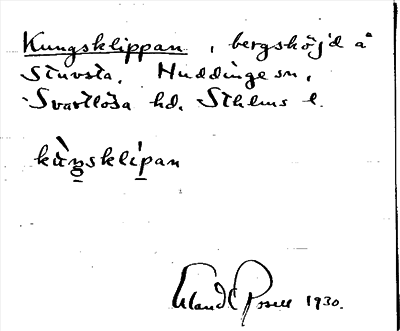 Kungsklippan, bergshöjd å
Stuvsta. Huddinge sn,
Svartlösa hd. Sthlms l.
kùŋsklípan
Erland Rosell 1930.